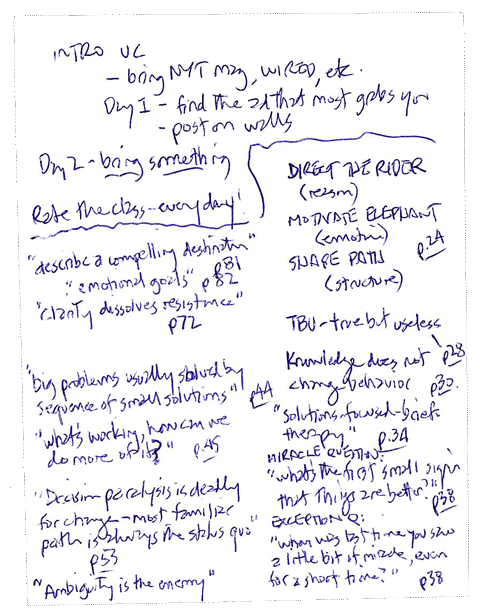 INTRO VC
- bring NYT mag, WIRED, etc.
Day 1 - find the ad that most grabs you
- post on walls
Day 2 - bring something
Rate the class - everyday!
"describe a compelling destination"
p81
"emotional goals" p82
"clarity dissolves resistance"
p72
"big problems usually solved by
sequence of small solutions"
p44
"what's working, how can we
do more of it?" p.45
"Decision paralysis is deadly
for change - most familiar
path is always the status quo"
p53
"Ambiguity is the enemy"
DIRECT THE RIDER
(reason)
MOTIVATE ELEPHANT
(emotion)
p.24
SHAPE PATH
(structure)
TBU - true but useless
p28
Knowledge does not
change behavior p30.
"solutions-focused-brief
therapy" p.34
MIRACLE QUESTION:
"what's the first small sign
that things are better?"
p38
EXCEPTION Q:
"when was last time you saw
a little bit of miracle, even
for a short time?"
p38